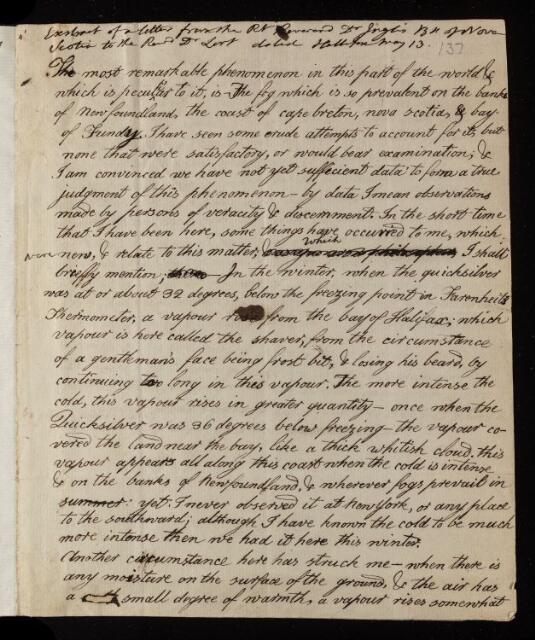 Extract of a letter from the Rt Reverend Dr Inglis Bp of Nova
Scotia to the Revd Dr Lort dated Halifax May 13.
137
The most remarkable phenomenon in this part of the world, &
which is peculiar to it, is the fog which is so prevalent on the banks
of Newfoundland, the coast of cape breton, nova scotia, & bay
of Fundy, I have seen some crude attempts to account for it, but
none that were satisfactory, or would bear examination; &
I am convinced we have not yet sufficient data to form a true
judgment of this phenomenon - by data I mean observations
made by persons of veracity & discernment. In the short time
that I have been here, some things have occurred to me, which
new, & relate to this matter, which I shall
briefly mention; In the winter, when the quicksilver
was at or about 32 degrees, below the freezing point in Farenheits
Thermometer, a vapour rose from the bay of Halifax; which
vapour is here called the shaver, from the circumstance
of a gentleman's face being frost bit, & losing his beard, by
continuing too long in this vapour. The more intense the
cold, this vapour rises in greater quantity - once when the
Quicksilver was 36 degrees below freezing - the vapour co-
vered the land near the bay, like a thick whitish cloud. this
vapour appears all along this coast when the cold is intense
& on the banks of Newfoundland, & wherever fogs prevail in
summer: yet I never observed it at Newyork, or any place
to the southward; although I have known the cold to be much
more intense then we had it here this winter.
Another circumstance here has struck me - when there is
any moisture on the surface of the ground, & the air has
a small degree of warmth, a vapour rises somewhat